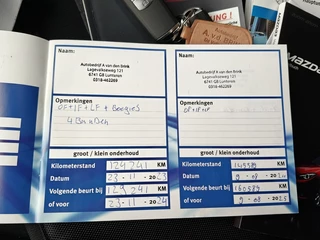 Naam:
Autobedrijf A van den Brink
Lagevalkseweg 121
6741 GB Lunteren
0318-462269
Opmerkingen
OF+IF+LF + Boegies
4 Banden
groot / klein onderhoud
Kilometerstand 124241 KM
Datum 23 - 11 - 2023
Volgende beurt bij 129241 KM
of voor 23 - 11 - 2024
Naam:
Autobedrijf A van den Brink
Lagevalkseweg 121
6741 GB Lunteren
0318-462269
Opmerkingen
groot / klein onderhoud
Kilometerstand KM
Datum 9 - 08 - 20
Volgende beurt bij KM
of voor 9 - 08 - 2025